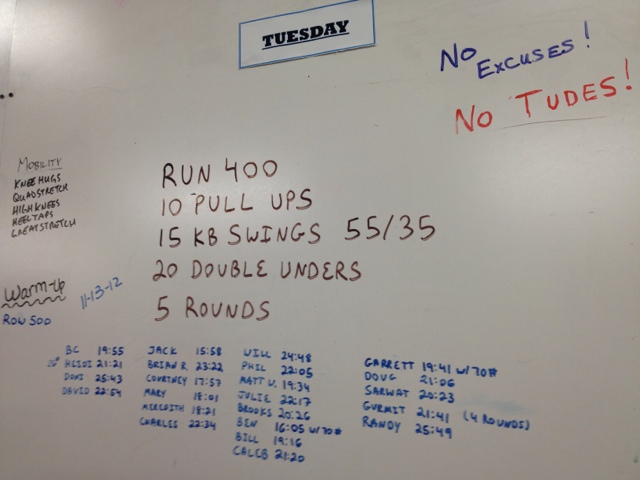 TUESDAY
No Excuses!
No Tudes!
Mobility
Knee Hugs
Quadstretch
High Knees
Heel Taps
Great Stretch
Warm-up
11-13-12
Row 500
RUN 400
10 PULL UPS
15 KB SWINGS 55/35
20 DOUBLE UNDERS
5 ROUNDS
BC 19:55
HEIDI 21:21
DONI 25:43
DAVID 22:54
JACK 15:58
BRIAN R. 23:22
COURTNEY 17:57
MARY 18:01
MEREDITH 18:21
CHARLES 22:34
WILL 24:48
PHIL 22:05
MATT U. 19:34
JULIE 22:17
BROOKS 20:26
BEN 16:05 W/70#
BILL 19:16
CALEB 21:20
GARRETT 19:41 W/70#
DOUG 21:06
SARWAT 20:23
GURMIT 21:41 (4 ROUNDS)
RANDY 25:49